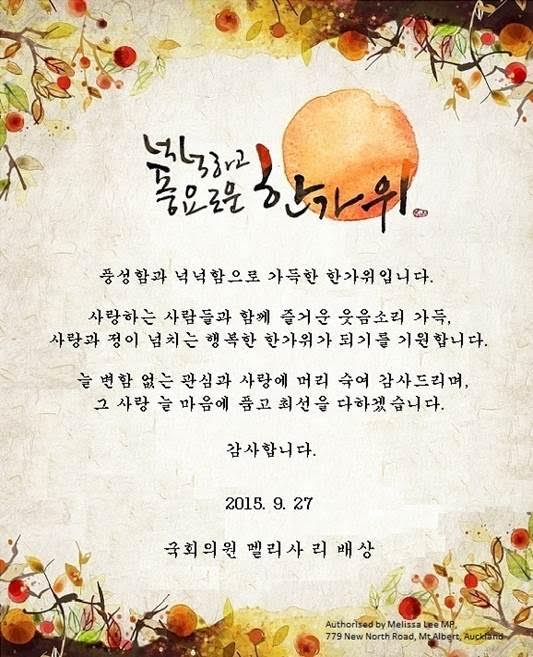 넉넉하고
풍요로운 한가위
풍성함과 넉넉함으로 가득한 한가위입니다.
사랑하는 사람들과 함께 즐거운 웃음소리 가득,
사랑과 정이 넘치는 행복한 한가위가 되기를 기원합니다.
늘 변함 없는 관심과 사랑에 머리 숙여 감사드리며,
그 사랑 늘 마음에 품고 최선을 다하겠습니다.
감사합니다.
2015. 9. 27
국회의원 멜리사 리 배상
Authorised by Melissa Lee MP,
779 New North Road, Mt Albert, Auckland